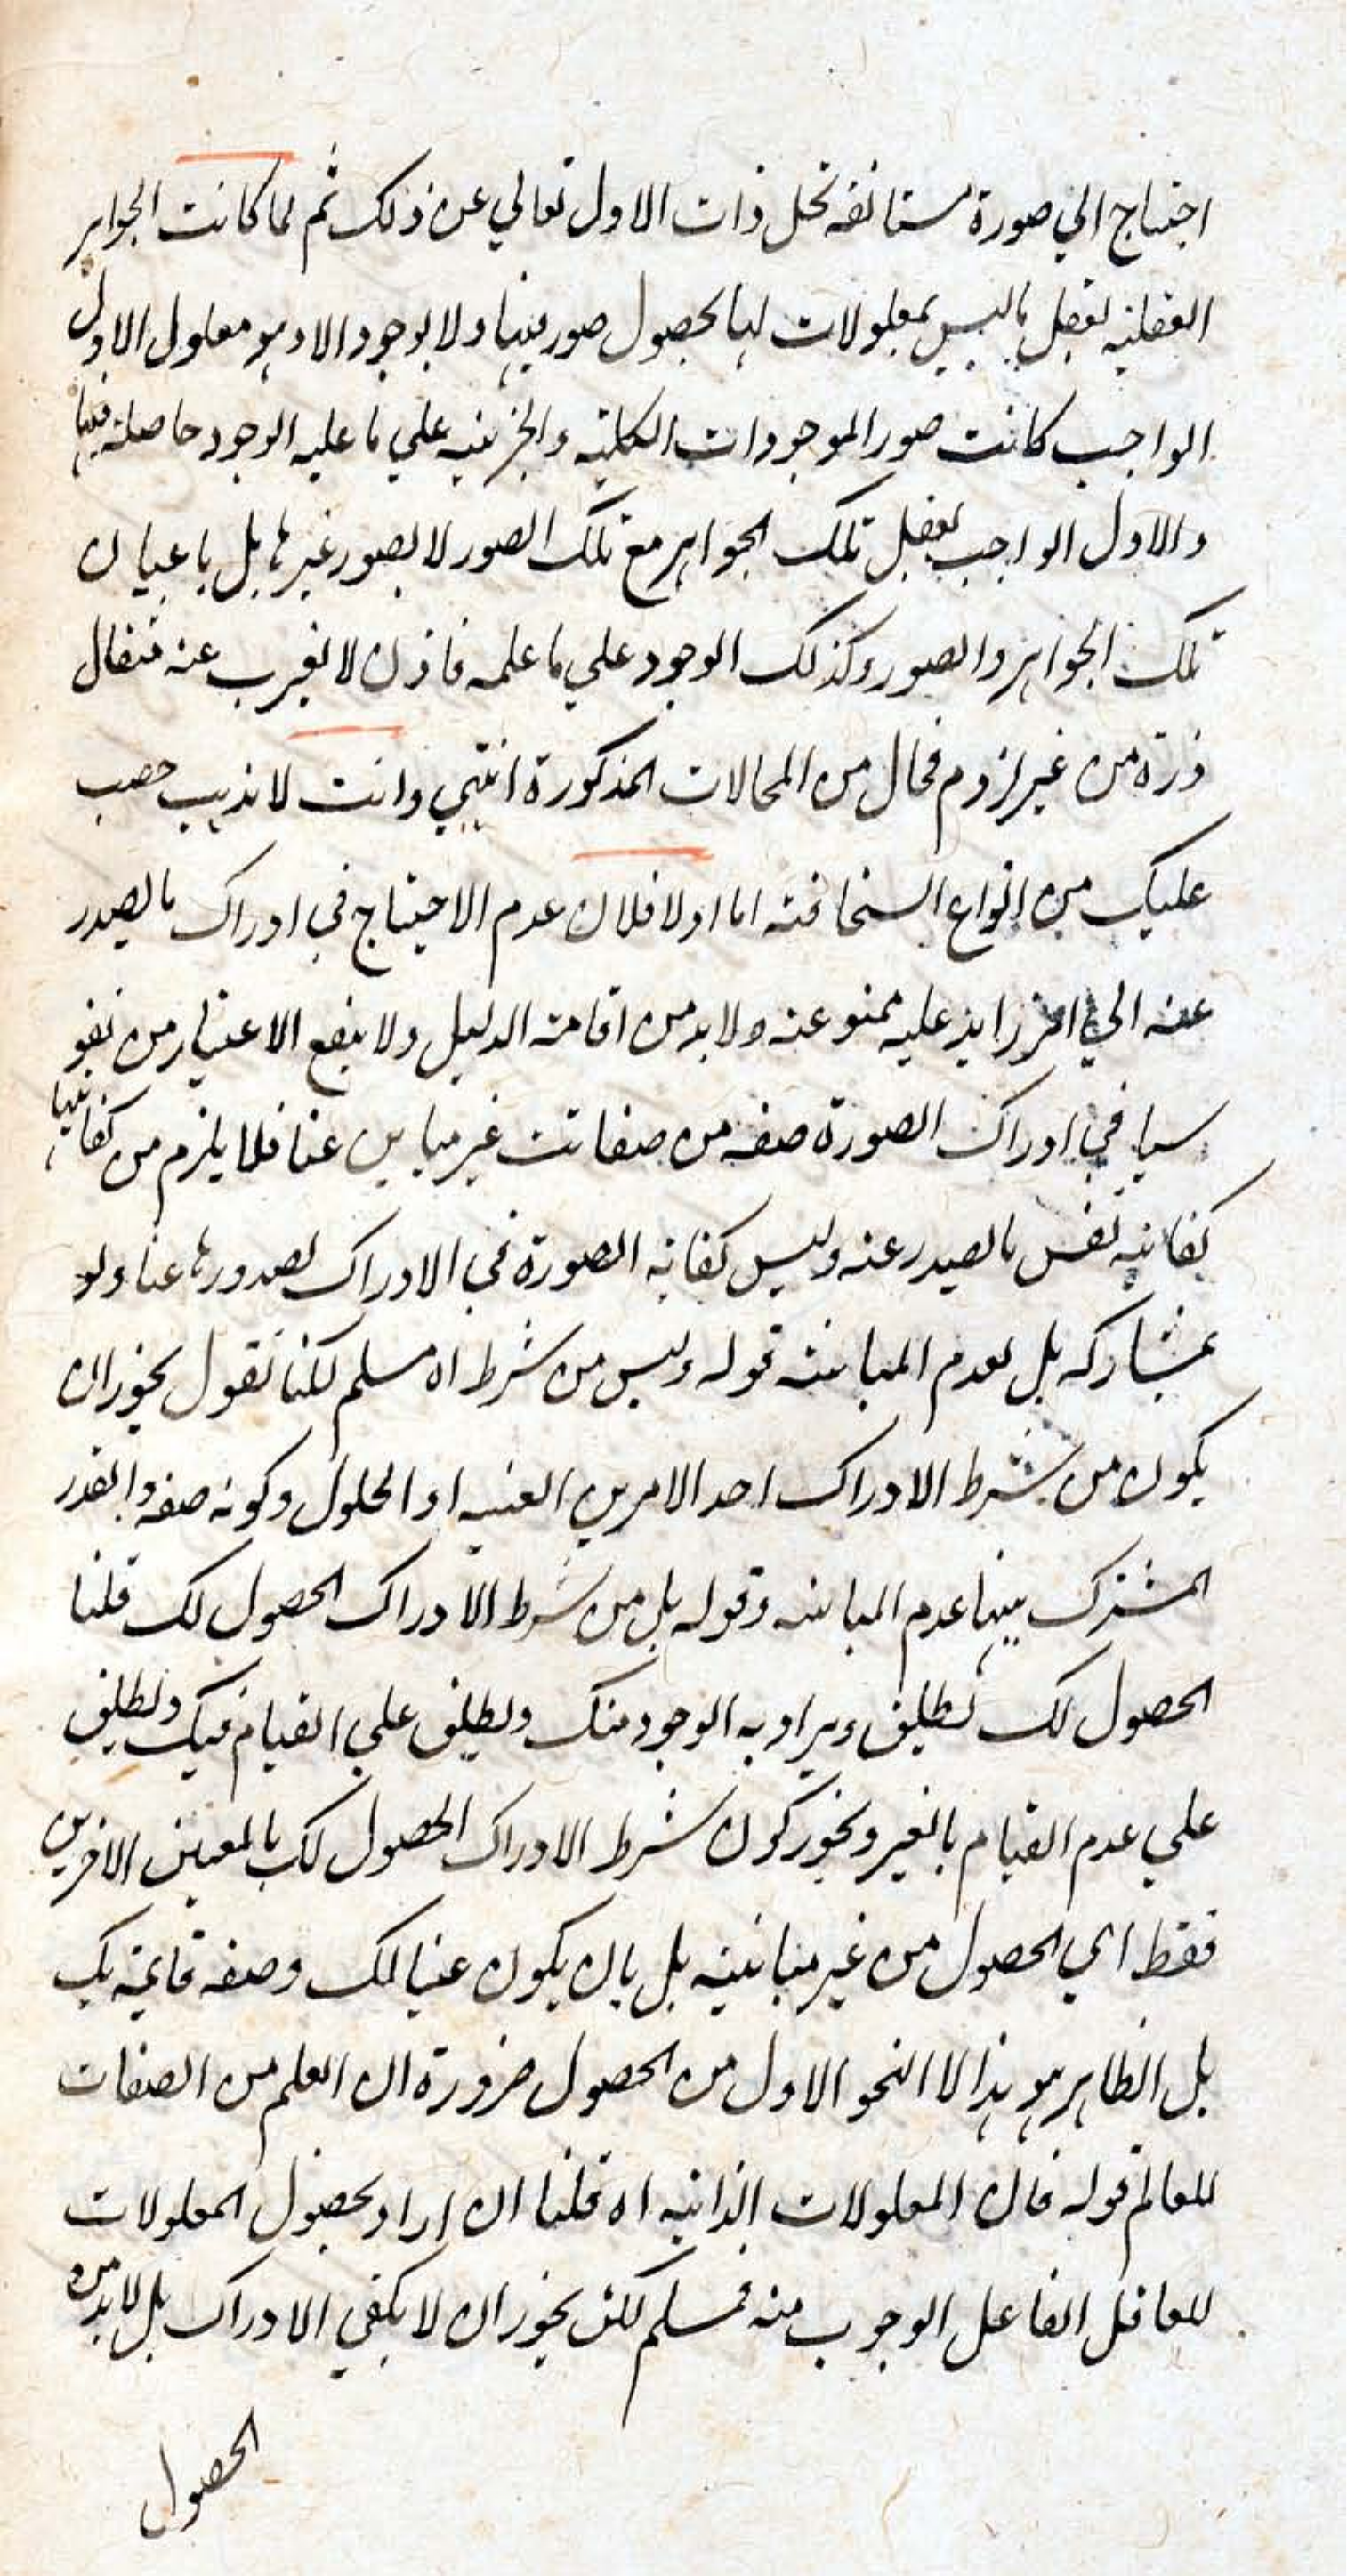 احتياج الي صورة مستانفه تحل ذات الاول تعالي عن ذلك ثم لما كانت الجواهر
العقليه تعقل ماليس بمعلولات لها بحصول صور فيها ولا بوجود الا وهو معلول الاول
الواجب كانت صور الموجودات الكليه والجزئيه علي ما عليه الوجود حاصلة فيها
والاول الواجب يعقل تلك الجواهر مع تلك الصور لا بصور غيرها بل باعيان
تلك الجواهر والصور وكذلك الوجود علي ما عليه فاذن لا يعزب عنه مثقال
ذرة من غير لزوم محال من المحالات المذكورة انتهي وانت لا يذهب
عليك من انواع السخافة اما اولا فلان عدم الاحتياج في ادراك ما يصدر
عنه الي امر زايد عليه ممنوعه ولا بد من اقامة الدليل ولا ينفع الاعتبار من
في ادراك الصورة صفه من صفاتنا غير مباين عنا فلا يلزم من كفايتها
كفايه نفس ما يصدر عنه وليس كفاية الصورة في الادراك لصدورها عنا ولو
بمشاركه بل لعدم المباينة قوله وليس من شرط اه مسلم لكنا نقول يجوز ان
يكون من شرط الادراك احد الامرين العينيه او الحلول وكونه صفه والقدر
المشترك بينهما عدم المباينه وقوله بل من شرط الادراك الحصول لك قلنا
الحصول لك يطلق ويراد به الوجود منك ويطلق علي القيام فيك ويطلق
علي عدم القيام بالغير ويجوز كون شرط الادراك الحصول لك بالمعنين الاخرين
فقط اي الحصول من غير مباينة بل بان يكون عينا لك وصفه قايمة بك
بل الظاهر هو هذا لا النحو الاول من الحصول ضرورة ان العلم من الصفات
للعالم قوله فان المعلولات الذاتيه اه قلنا ان اراد بحصول المعلولات
للعاقل الفاعل الوجوب منه فمسلم لكن يجوز ان لا يكفي الادراك بل لا بد من
الحصول